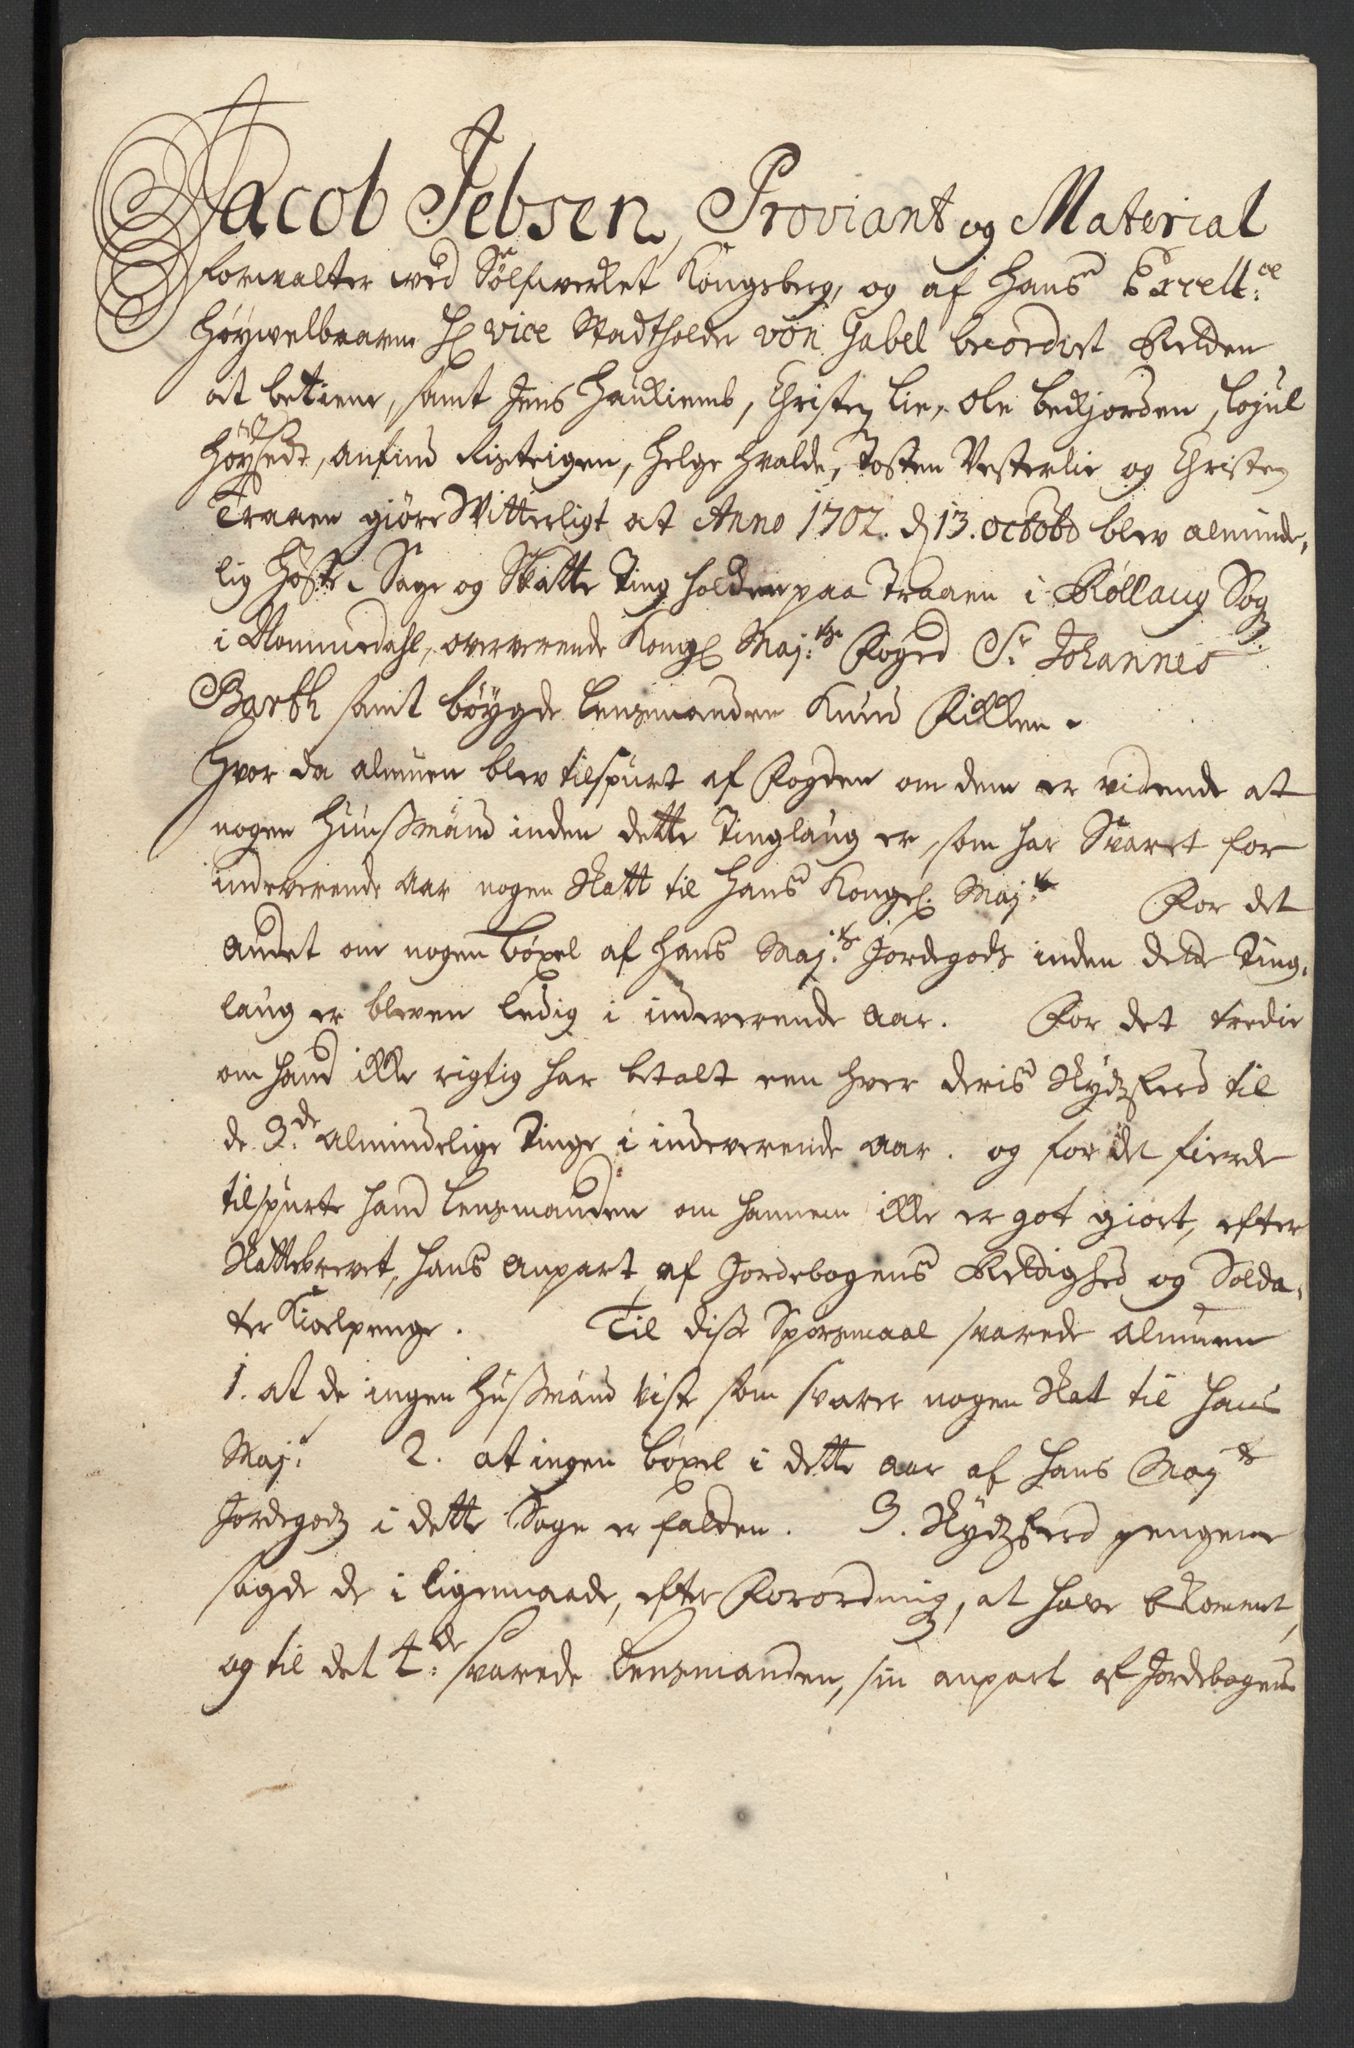 Jacob Jebsen, Proviant og Material
forvalter ved Sølfwerket Kongsberg, og af Hans Excell:ce
Høyvelbaarne H. vice Stadtholder von Gabel beordret Retten
at betiene, samt Jens Haukiemb, Christen Lie, Ole Bekjorden,
Høysedt, Anfind Risteigen, Helge Hvalde, Tosten Vesterlie og Christen
Traaen giöre Witterligt at Anno 1702. d. 13. octobr blev alminde,
lig Høste, Sage og Skatte Ting holden paa Traaen i Rollaug Sog
i Nommedahl, oververende Kongl Maj:ts Foged Sr. Johannes
Barth samt bøygde Lensmanden Knud Fikken.
Hvor da almuen blev tilspurt af Fogden om dem er vidende at
nogen Huussmänd inden dette Tinglaug er, som har Svaret for
indeverende Aar nogen Skatt til Hans Kongel. Maj:ts For det
Andet om nogen bøxel af Hans Maj:ts Jordegods inden dette Ting,
laug er bleven ledig i indeverende Aar. For det tredie
om hand ikke rigtig har betalt een hver deris Skydsferd til
de 3.de Almindelige Tinge i indeverende Aar. og for det fierde
tilspurte hand Lensmanden om hannem ikke er got giort, efter
Skattebrevet, hans Anpart af Jordebogens Rettighed og Solda,
ter Kiolpenge. Til disse Spørsmaal svarede Almuen
1. at de ingen Hussmänd viste som svarer nogen Skat til Hans
Maj:t 2. at ingen bøxel i dette Aar af Hans Maj:ts
Jordegodz i dette Sogn er falden. 3. Skydsferd pengene
sagde de i ligemaade, efter Forordning, at have bekommet,
og til det 4:de svarede Lensmanden, sin anpart af Jordebogens